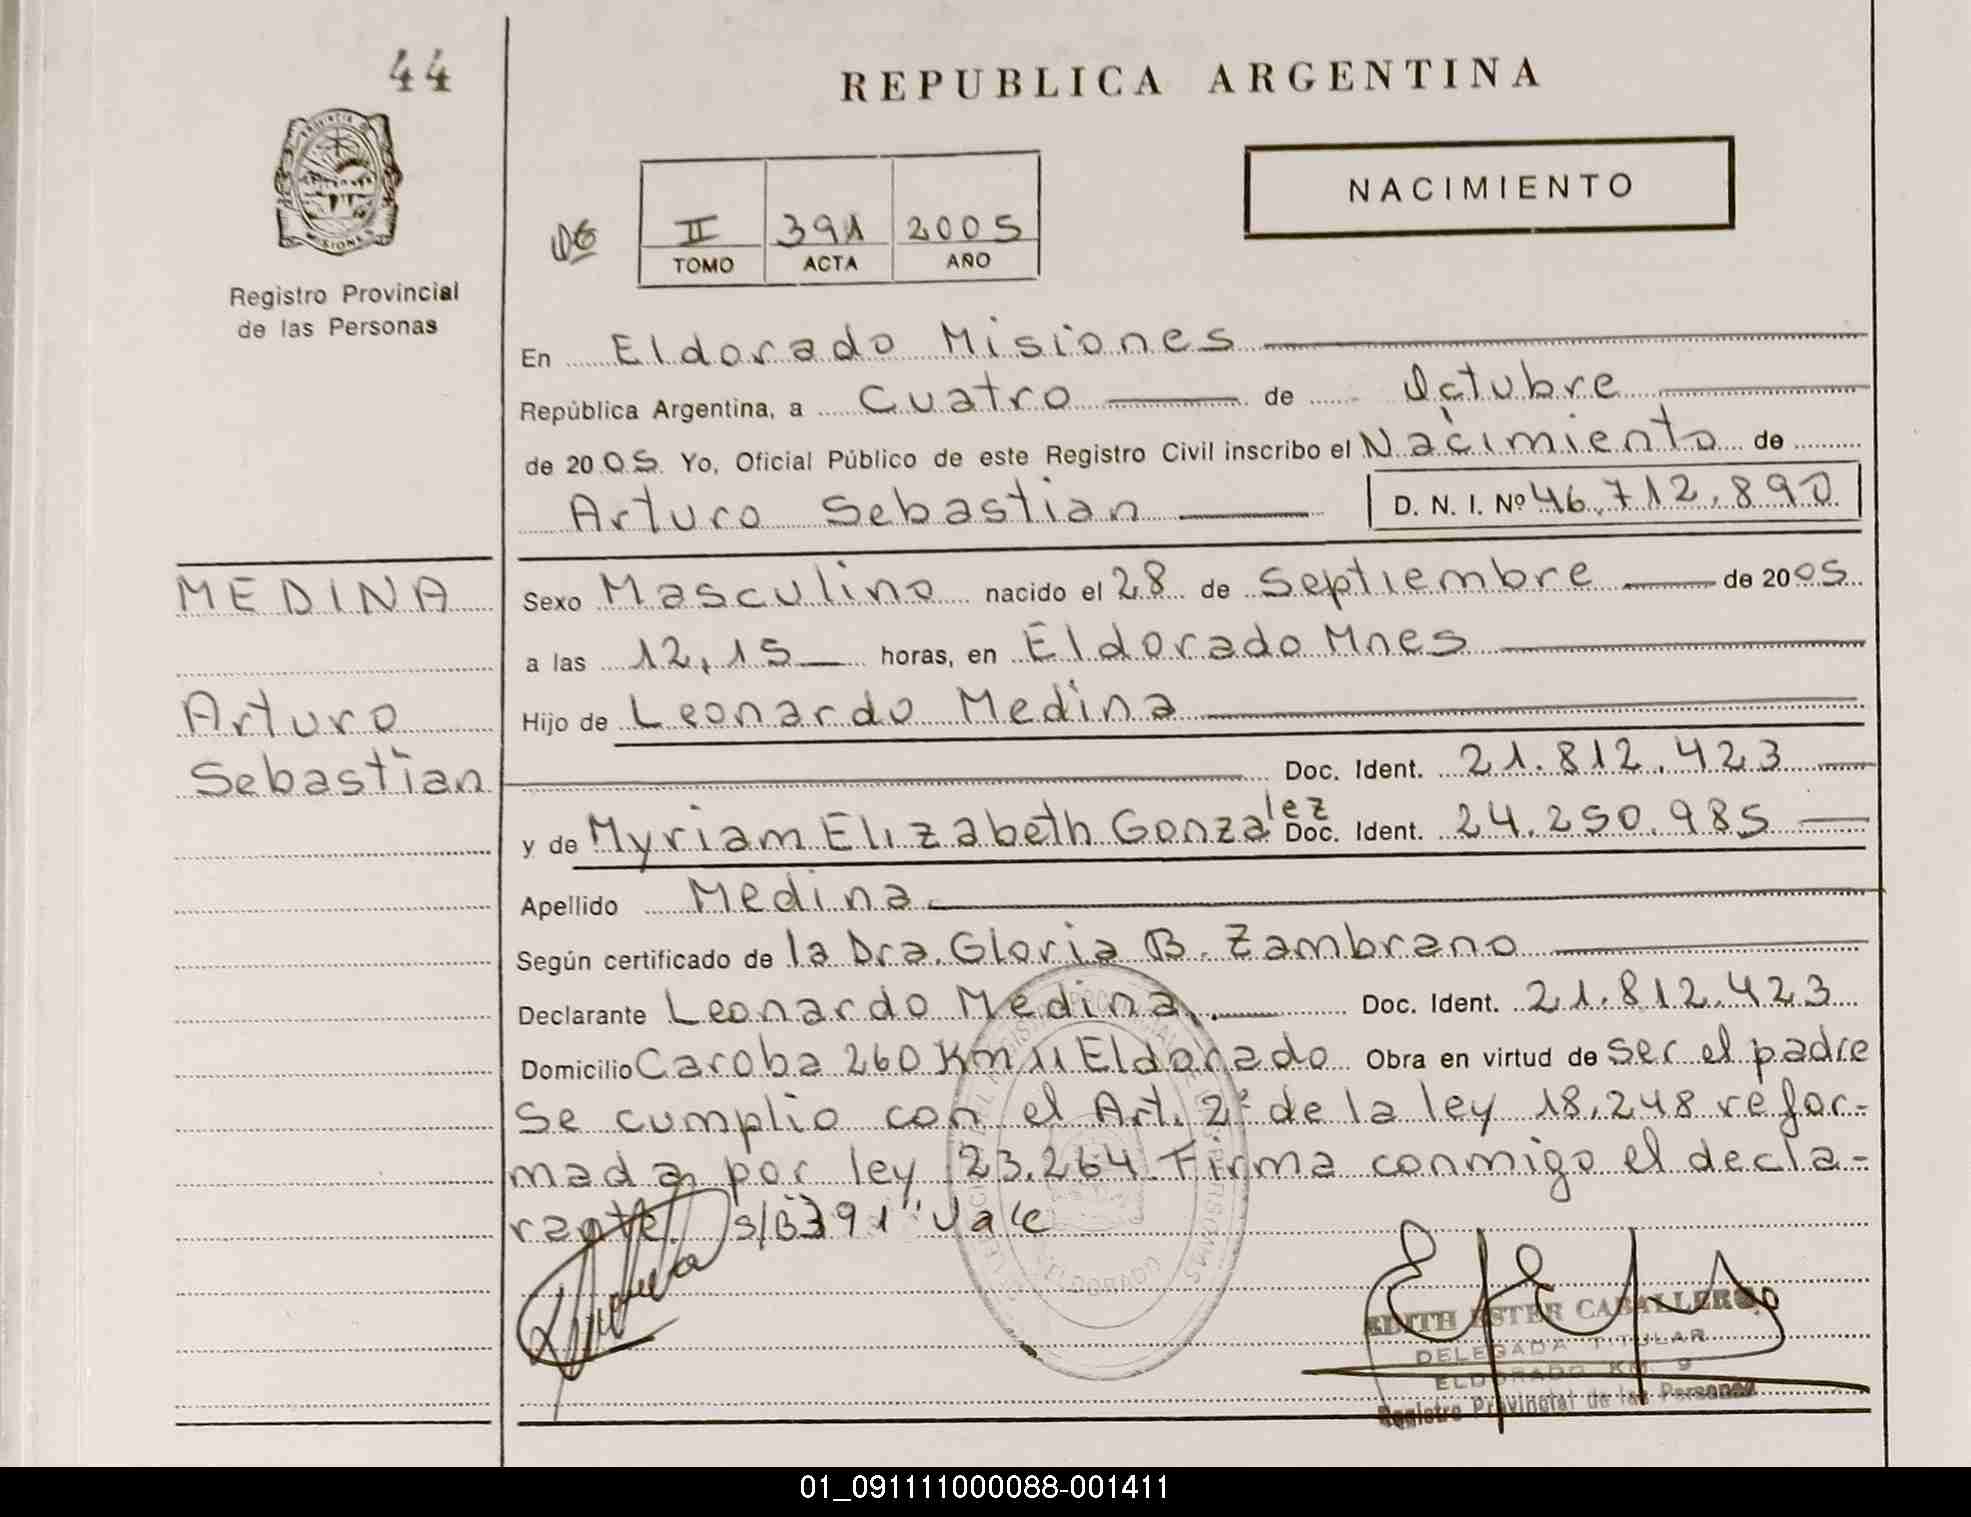 44
REPUBLICA ARGENTINA
NACIMIENTO
06
II 391 2005
TOMO ACTA AÑO
Registro Provincial
de las Personas
En Eldorado Misiones
República Argentina, a Cuatro de Octubre
de 2005 Yo, Oficial Público de este Registro Civil inscribo el Nacimiento de
Arturo Sebastian D. N. I. Nº 46.712.890
MEDINA
Arturo
Sebastian
Sexo Masculino nacido el 28 de Septiembre de 2005
a las 12,15 horas, en Eldorado Mnes
Hijo de Leonardo Medina
Doc. Ident. 21.812.423
y de Myriam Elizabeth Gonzalez Doc. Ident. 24.250.985
Apellido Medina
Según certificado de la Dra. Gloria B. Zambrano
Declarante Leonardo Medina Doc. Ident. 21.812.423
Domicilio Caroba 260 Km 11 Eldorado Obra en virtud de ser el padre
Se cumplio con el Art. 2º de la ley 18.248 refor-
mada por ley 23.264 Firma conmigo el decla-
rante. S/B 391" Vale
EDITH ESTER CABALLERO
DELEGADA TITULAR
ELDORADO KM. 9
Registro Provincial de las Personas
01_091111000088-001411